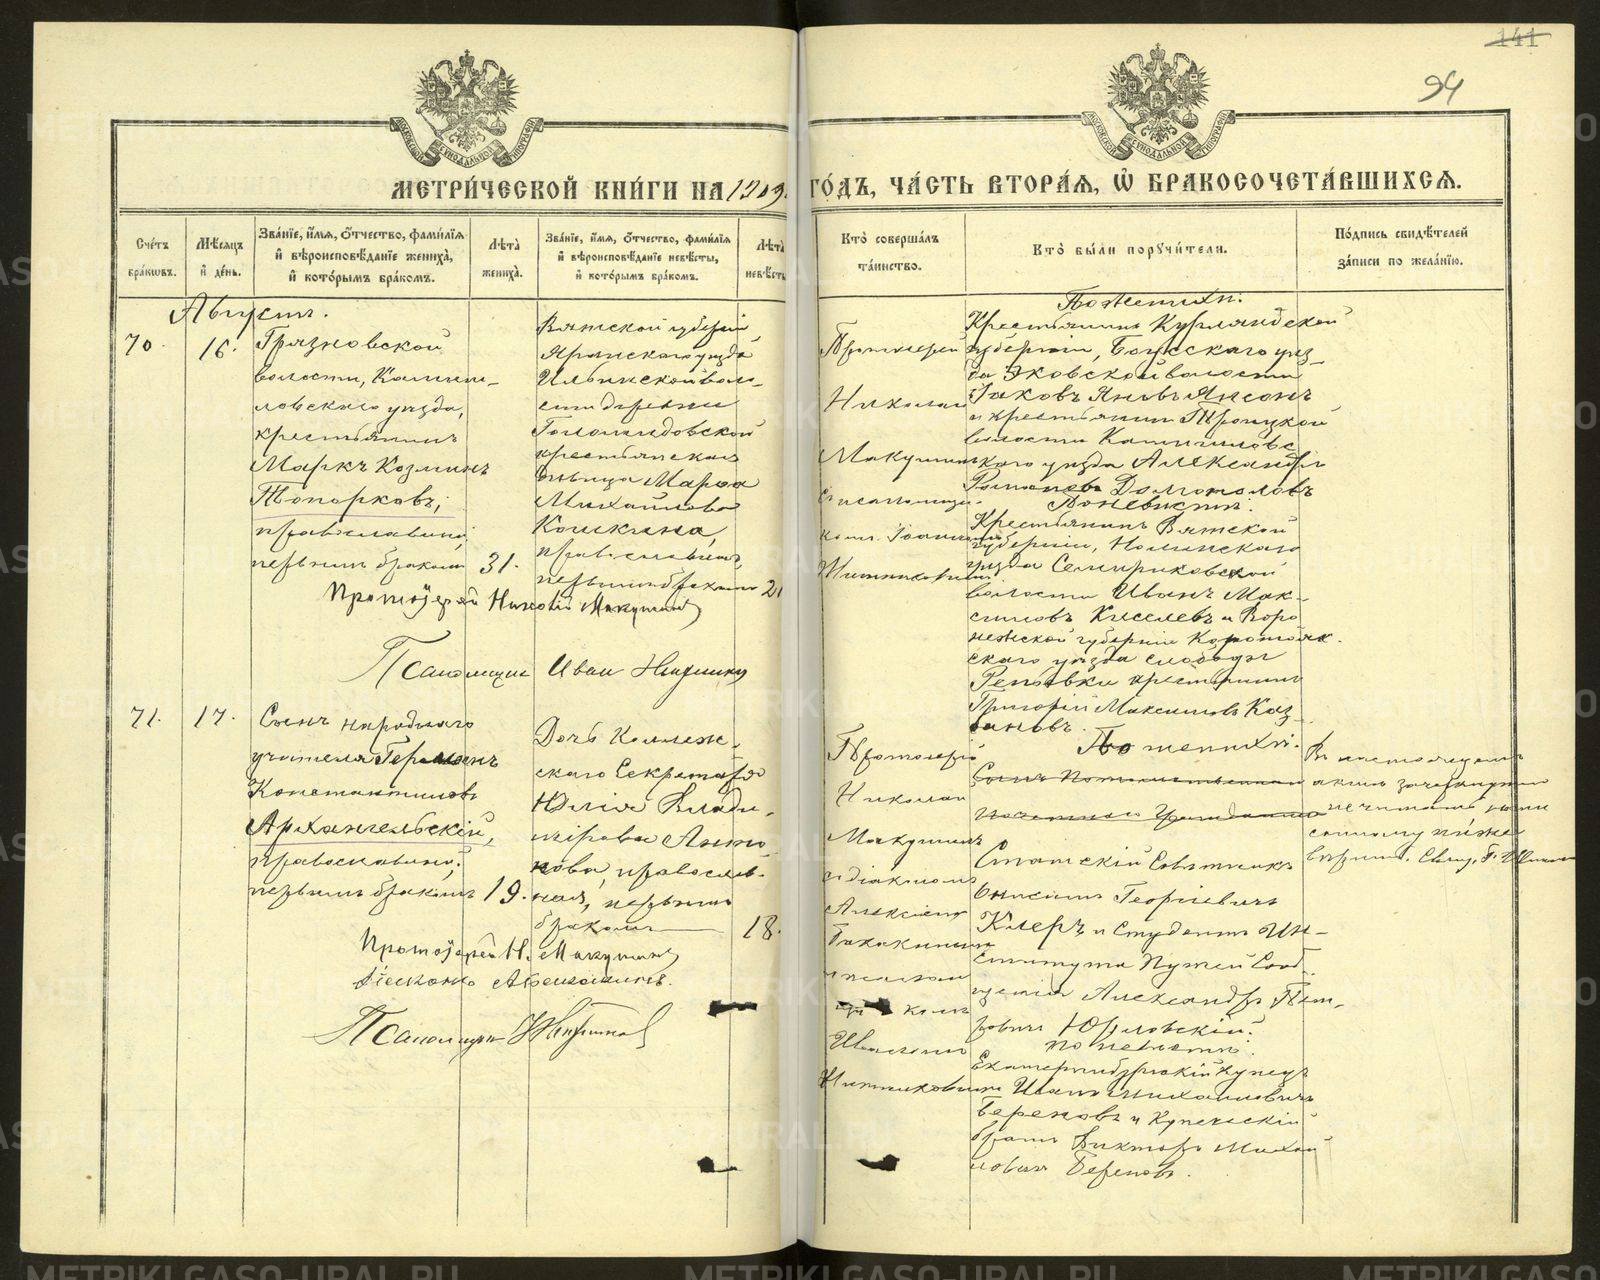 141
94
МЕТРИ́ЧЕСКОЙ КНИ́ГИ НА 1909 ГО́ДЪ, ЧА́СТЬ ВТОРА́Ѧ, Ѽ БРАКОСОЧЕТА́ВШИХСѦ.
Сче́тъ бра́ковъ.
Мѣ́сѧцъ и҆ де́нь.
Зва́нїе, и҆́мѧ, ѻ҆́тчество, фами́лїѧ и҆ вѣроисповѣ́данїе жениха̀, и҆ кото́рымъ бра́комъ.
Лѣ́та жениха̀.
Зва́нїе, и҆́мѧ, ѻ҆́тчество, фами́лїѧ и҆ вѣроисповѣ́данїе невѣ́сты, и҆ кото́рымъ бра́комъ.
Лѣ́та невѣ́сты
Кто̀ соверша́лъ та́инство.
Кто̀ бы́ли порꙋчи́тели.
По́дпись свидѣ́телей за́писи по жела́нїю.
Августъ.
70.
16.
Грязновской
волости, Камыш-
ловскаго уѣзда,
крестьянинъ
Маркъ Козминъ
Топорковъ,
православный,
первымъ бракомъ
31.
Вятской губерніи
Яранскаго уѣзда
Ильинской воло-
сти деревни
крестьянская
дѣвица Марѳа
Михайлова
Кошкина,
православная,
первымъ бракомъ
21
Протоіерей
Николай
Макушинъ
съ псаломщи-
комъ Іоанномъ
По женихѣ.
Крестьянинъ Курляндской
губерніи, Боускаго уѣз-
да Эковской волости
Яковъ Яновъ Янсонъ
и крестьянинъ Троицкой
волости Камышловс-
каго уѣзда Александръ
Романовъ Долгополовъ
По невѣстѣ.
Крестьянинъ Вятской
губерніи, Нолинскаго
уѣзда
волости Иванъ Мак-
симовъ Киселевъ и Воро-
нежской губерніи Коротояк-
скаго уѣзда слободы
Репьевки крестьянинъ
Григорій Максимовъ Каз-
Протоіерей Николай Макушинъ
Псаломщикъ Иванъ
71.
17.
Сынъ народнаго
учителя Германъ
Константиновъ
Архангельскій,
православный,
первымъ бракомъ
19.
Дочь Коллеж-
скаго Секретаря
Юлія Влади-
мірова Анто-
нова, православ-
ная, первымъ
бракомъ
18.
Протоіерей
Николай
Макушинъ
съ діакономъ
Алексіемъ
и псалом-
щикомъ
Иваномъ
По женихѣ.
Сынъ Потомственнаго
Почетнаго Гражданина
Статскій Совѣтникъ
Онисимъ Георгіевичъ
Клеръ и Студентъ Ин-
ститута Путей Сооб-
щенія Александръ Пет-
ровичъ
по невѣстѣ.
Екатеринбургскій купецъ
Иванъ Михайловичъ
Береновъ и Купеческій
братъ Викторъ Михай-
ловичъ Береновъ.
Въ настоящемъ
актѣ зачеркнутое
не читать,
ниже
вѣрить. Свящ.
Протоіерей Н. Макушинъ
Псаломщикъ